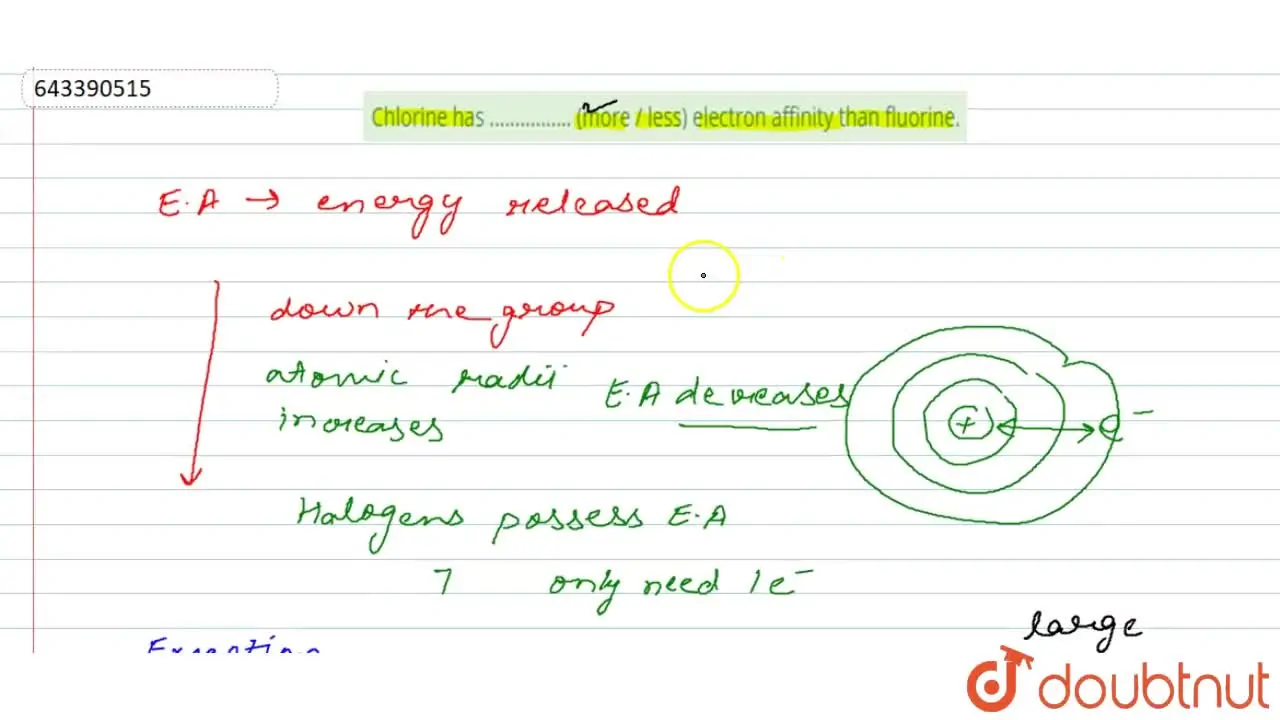 643390515
Chlorine has ................ (more / less) electron affinity than fluorine.
E.A → energy released
down the group
atomic radii
increases
E.A decreases
+ e⁻
Halogens possess E.A
7 only need 1e⁻
large
doubtnut